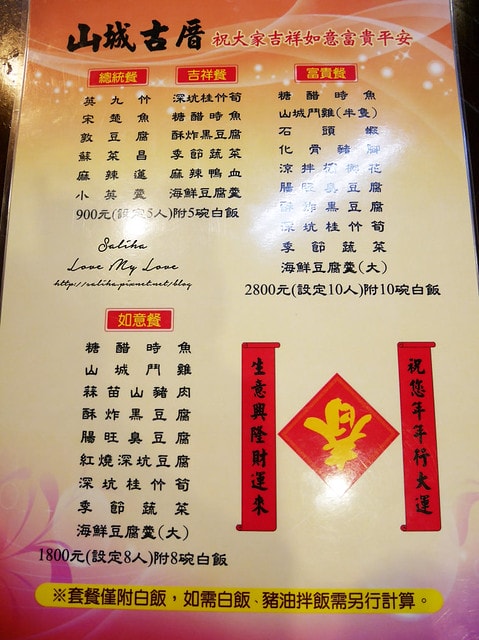 山城古厝 祝大家吉祥如意富貴平安
總統餐
英九竹
宋楚魚
敦豆腐
蘇菜昌
麻辣蓮
小英羹
吉祥餐
深坑桂竹筍
糖醋時魚
酥炸黑豆腐
季節蔬菜
麻辣鴨血
海鮮豆腐羹
900元(設定5人)附5碗白飯
富貴餐
糖醋時魚
山城鬥雞(半隻)
石頭蝦
化骨豬腳
涼拌檳榔花
腸旺臭豆腐
酥炸黑豆腐
深坑桂竹筍
季節蔬菜
海鮮豆腐羹(大)
2800元(設定10人)附10碗白飯
Saliha
Love My Love
http://saliha.pixnet.net/blog
如意餐
糖醋時魚
山城鬥雞
蒜苗山豬肉
酥炸黑豆腐
腸旺臭豆腐
紅燒深坑豆腐
深坑桂竹筍
季節蔬菜
海鮮豆腐羹(大)
1800元(設定8人)附8碗白飯
生意興隆財運來
春
祝您年年行大運
※套餐僅附白飯，如需白飯、豬油拌飯需另行計算。